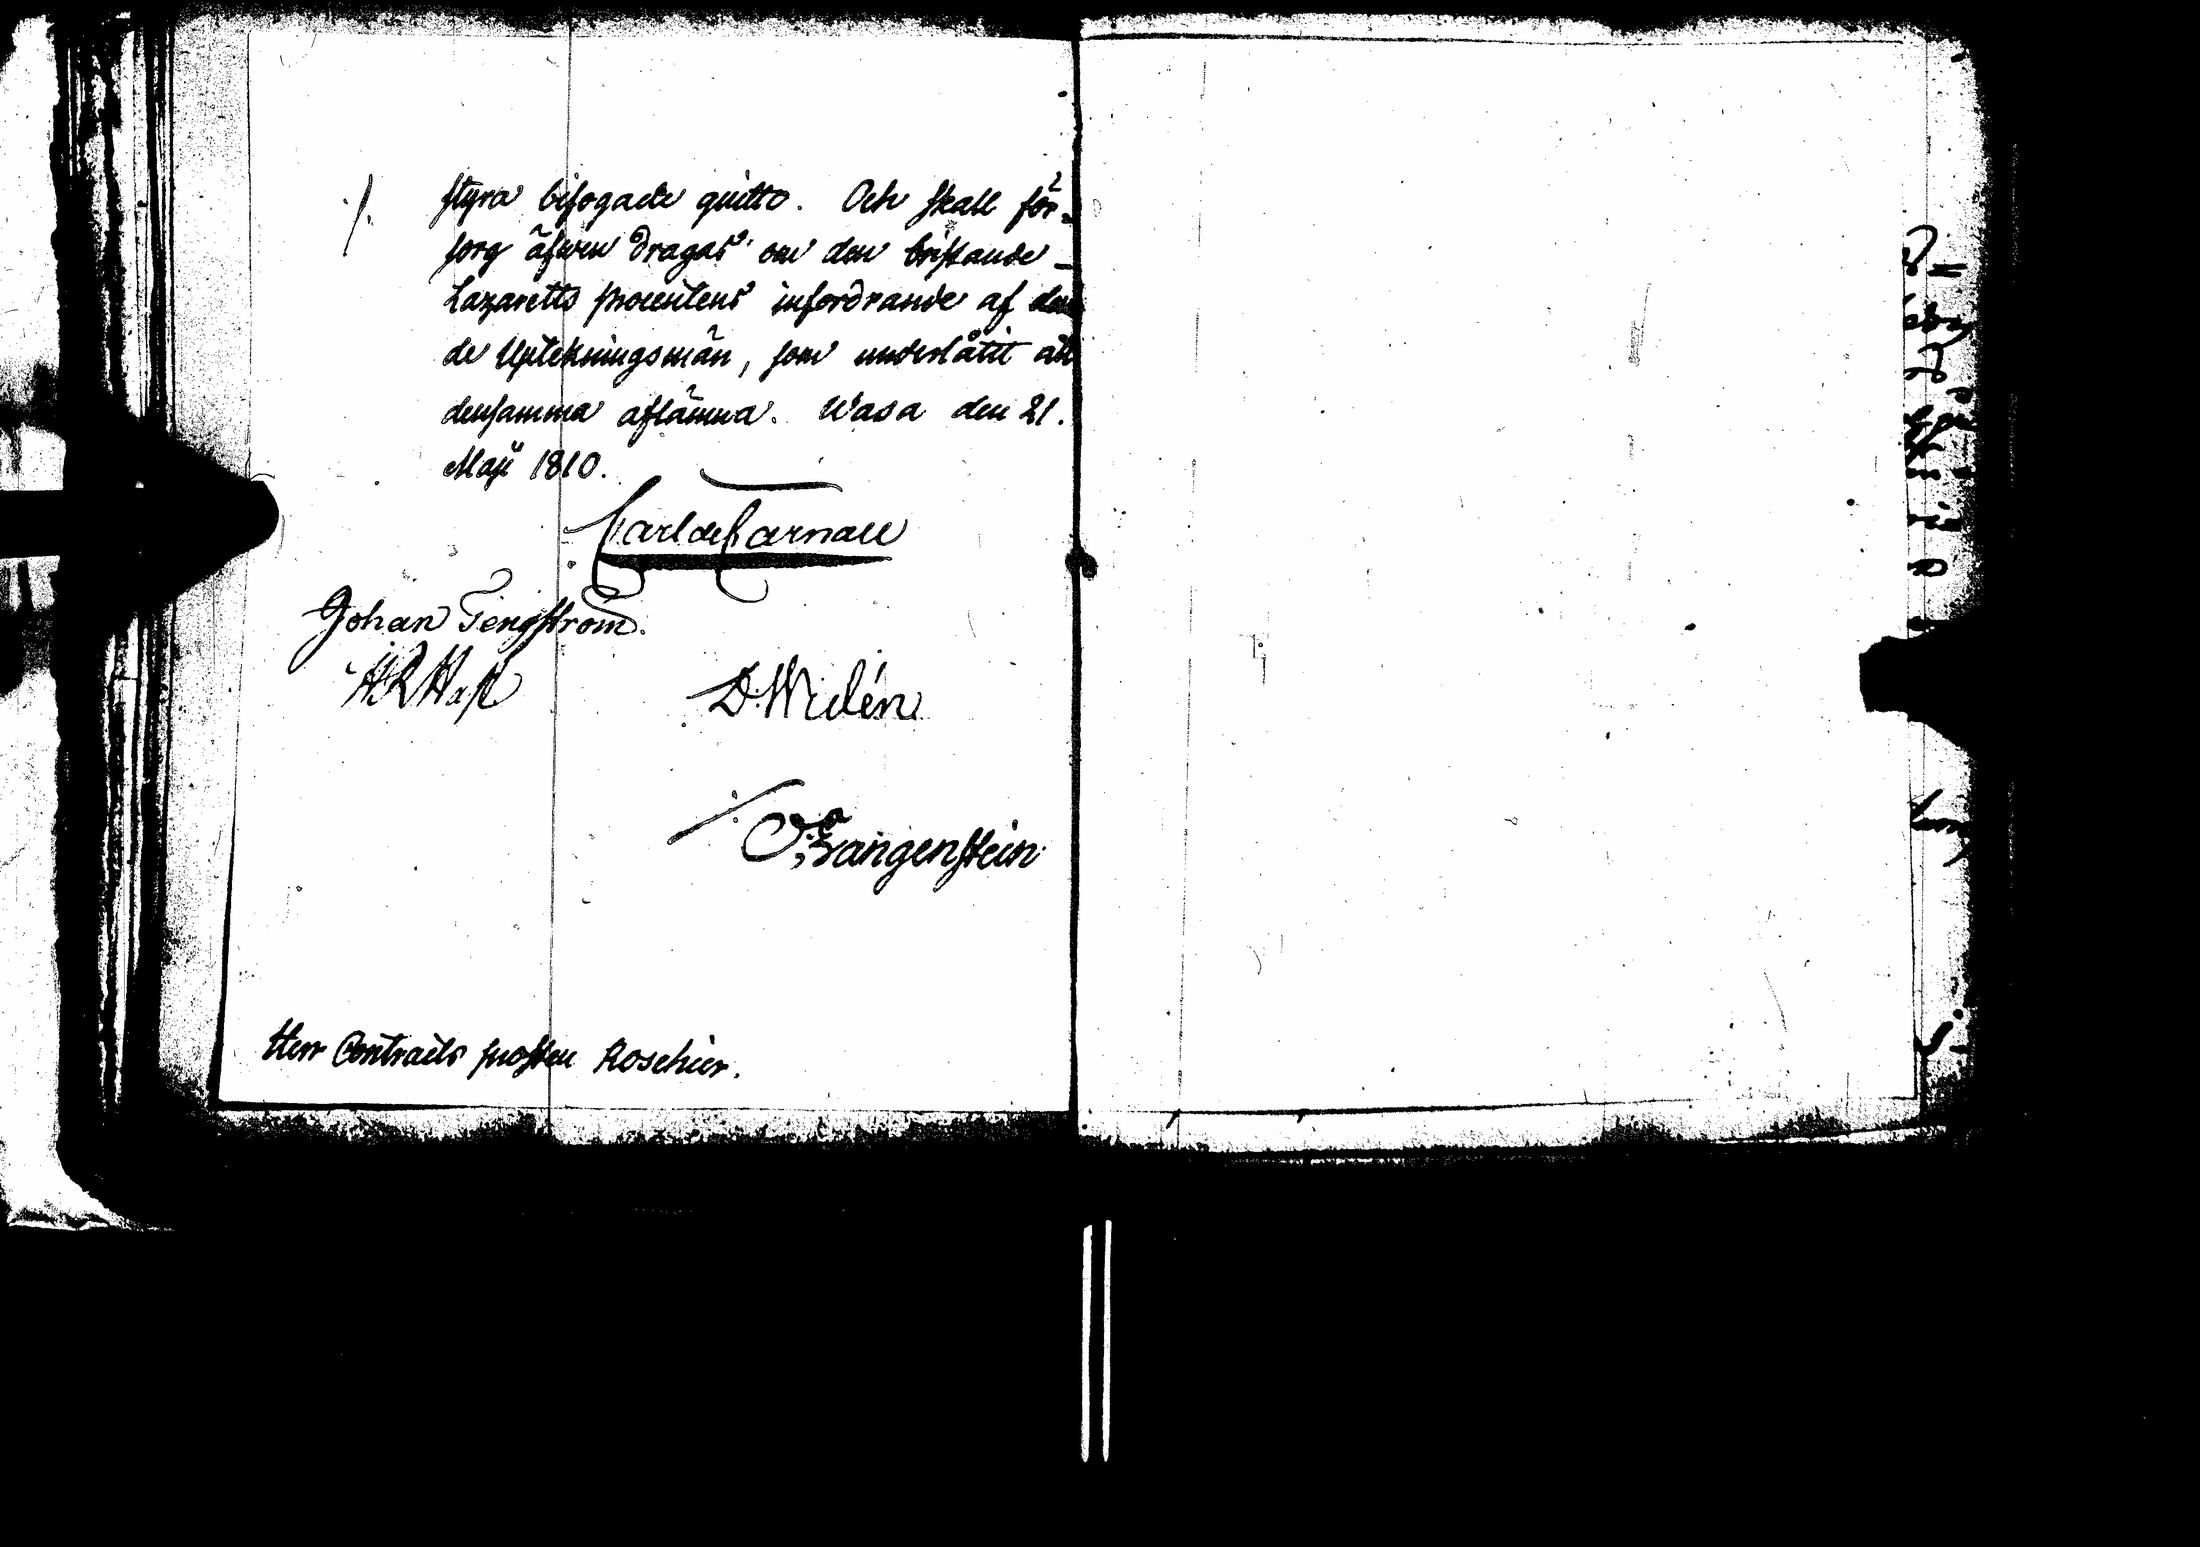 ./.
styra bifogade quitto. Och skall för-
sorg äfwen dragas om den bristande
Lazaretts procentens infordrande af
de Uptekningsmän, som underlåtit att
densamma aflämna. Wasa den 21.
Maji 1810.
Carl de Carnall
Johan Tengström.
D. Widén
Langenstein
Herr Contracts prosten Roschier.